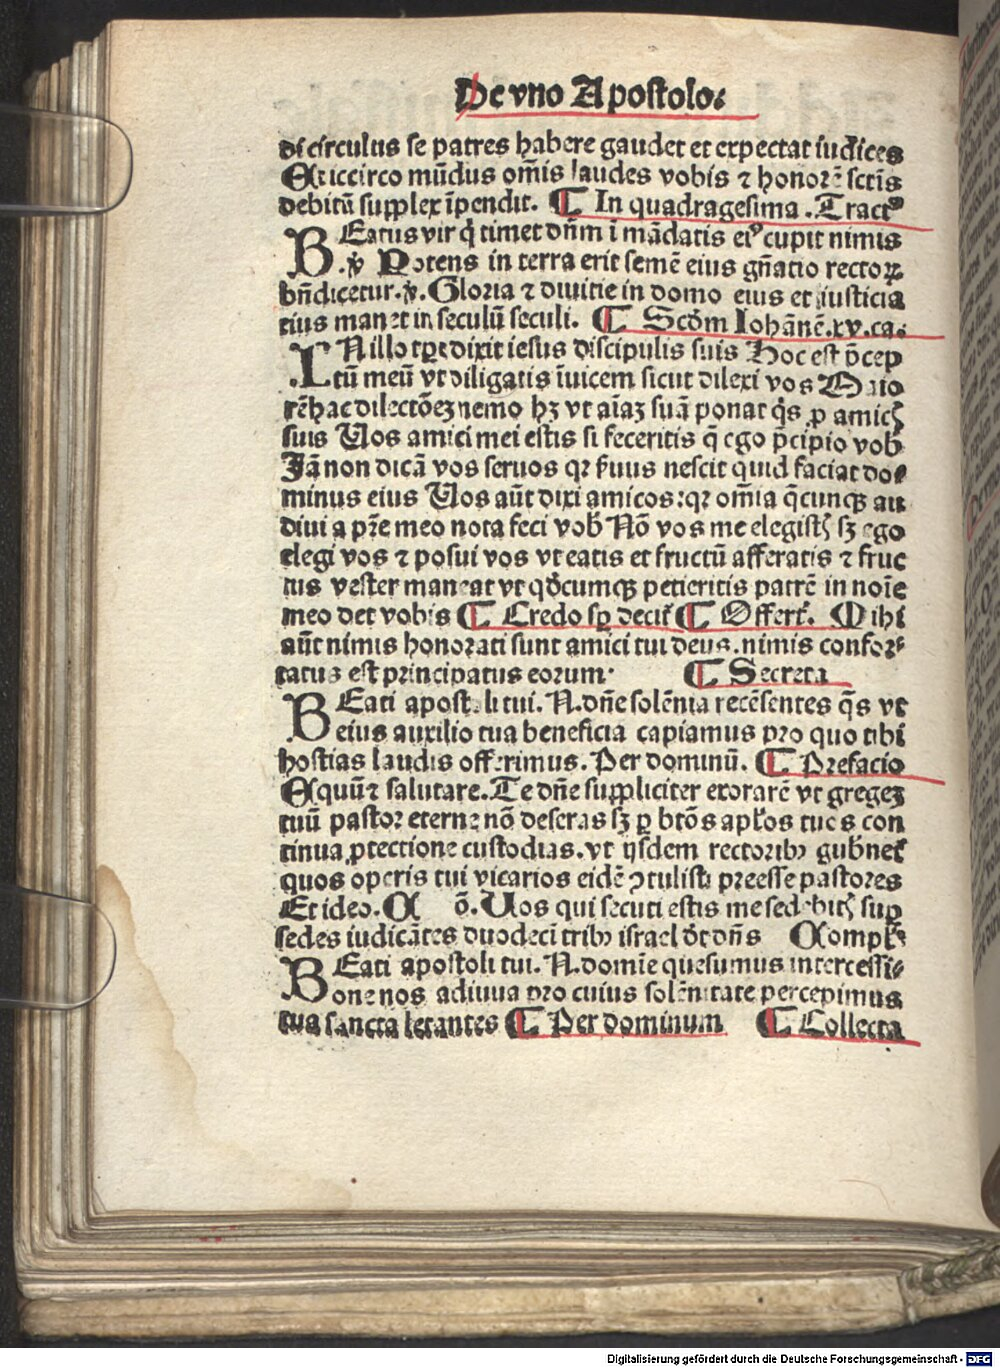 De vno Apostolo.
di circulus se patres habere gaudet et expectat iudices
Et iccirco mũdus om̃is laudes vobis ⁊ honorẽ sctĩs
debitũ supplex ĩpendit. ¶ In quadragesima . Tractꝰ
BEatus vir q̇ timet dñm ĩ mãdatis eiꝰ cupit nimis
.℣ Potens in terra erit semẽ eius gñatio rectoꝝ
bñdicetur.℣. Gloria ⁊ diuitie in domo eius et iusticia
eius manet in seculũ seculi. ¶ Scdm Iohãnẽ.xv.ca.
IN illo tꝑe dixit iesus discipulis suis Hoc est p̄cep
tũ meũ vt diligatis ĩuicem sicut dilexi vos Maio
rẽ hac dilectõeꝫ nemo hꝫ vt aĩaꝫ suã ponat q̇s ꝓ amicꝭ
suis Vos amici mei estis si feceritis q̄ ego p̄cipio vob̄
Iã non dicã vos seruos qꝛ ẜuus nescit quid faciat do-
minus eius Vos aũt dixi amicos:qꝛ om̃ia q̄cunqꝫ au
diui a pr̃e meo nota feci vob̄ Nõ vos me elegistꝭ sꝫ ego
elegi vos ⁊ posui vos vt eatis et fructũ afferatis ⁊ fruc
tus vester maneat vt qd̄cumqꝫ petieritis patrẽ in noĩe
meo det vobis ¶ Credo sꝑ decit᷒ ¶ Offert᷒. Mihi
aũt nimis honorati sunt amici tui deus.nimis confor-
tatus est principatus eorum. ¶ Secreta
BEati apostoli tui. N. dñe solẽnia recẽsentes q̄s vt
eius auxilio tua beneficia capiamus pro quo tibi
hostias laudis offerimus. Per dominũ. ¶ Prefacio
Equũ ⁊ salutare. Te dñe suppliciter exorarẽ vt gregeꝫ
tuũ pastor eterne nõ deseras sꝫ ꝑ btõs apl̃os tuos con
tinua ꝓtectione custodias. vt ijsdem rectoribꝫ gub̃net᷒
quos operis tui vicarios eidẽ ꝯtulisti preesse pastores
Et ideo. Cõ. Uos qui secuti estis me sedebitꝭ suꝑ
sedes iudicãtes duodecĩ tribꝫ israel dt̃ dñs Compl᷒
BEati apostoli tui. N. domĩe quesumus intercessi-
one nos adiuua pro cuius solẽnitate percepimus
tua sancta letantes ¶ Per dominum ¶ Collecta
Digitalisierung gefördert durch die Deutsche Forschungsgemeinschaft - DFG